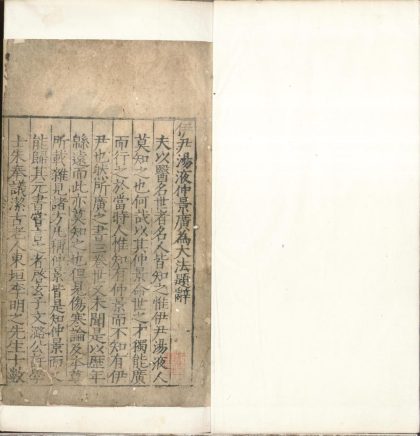 伊尹湯液仲景廣為大法題辭
夫以醫名世者名人皆知之惟伊尹湯液人
莫知之也何哉以其仲景命世之才獨能廣
而行之於當時人惟知有仲景而不知有伊
尹也然所廣之書世又未聞是以歷年
緜遠而此亦莫知之也但見傷寒論及本草
所載雜見諸方凡稱仲景皆是知仲景而
能歸其元書啓玄子文潞公許學
士朱奉議潔古老人東垣李明之先生十數